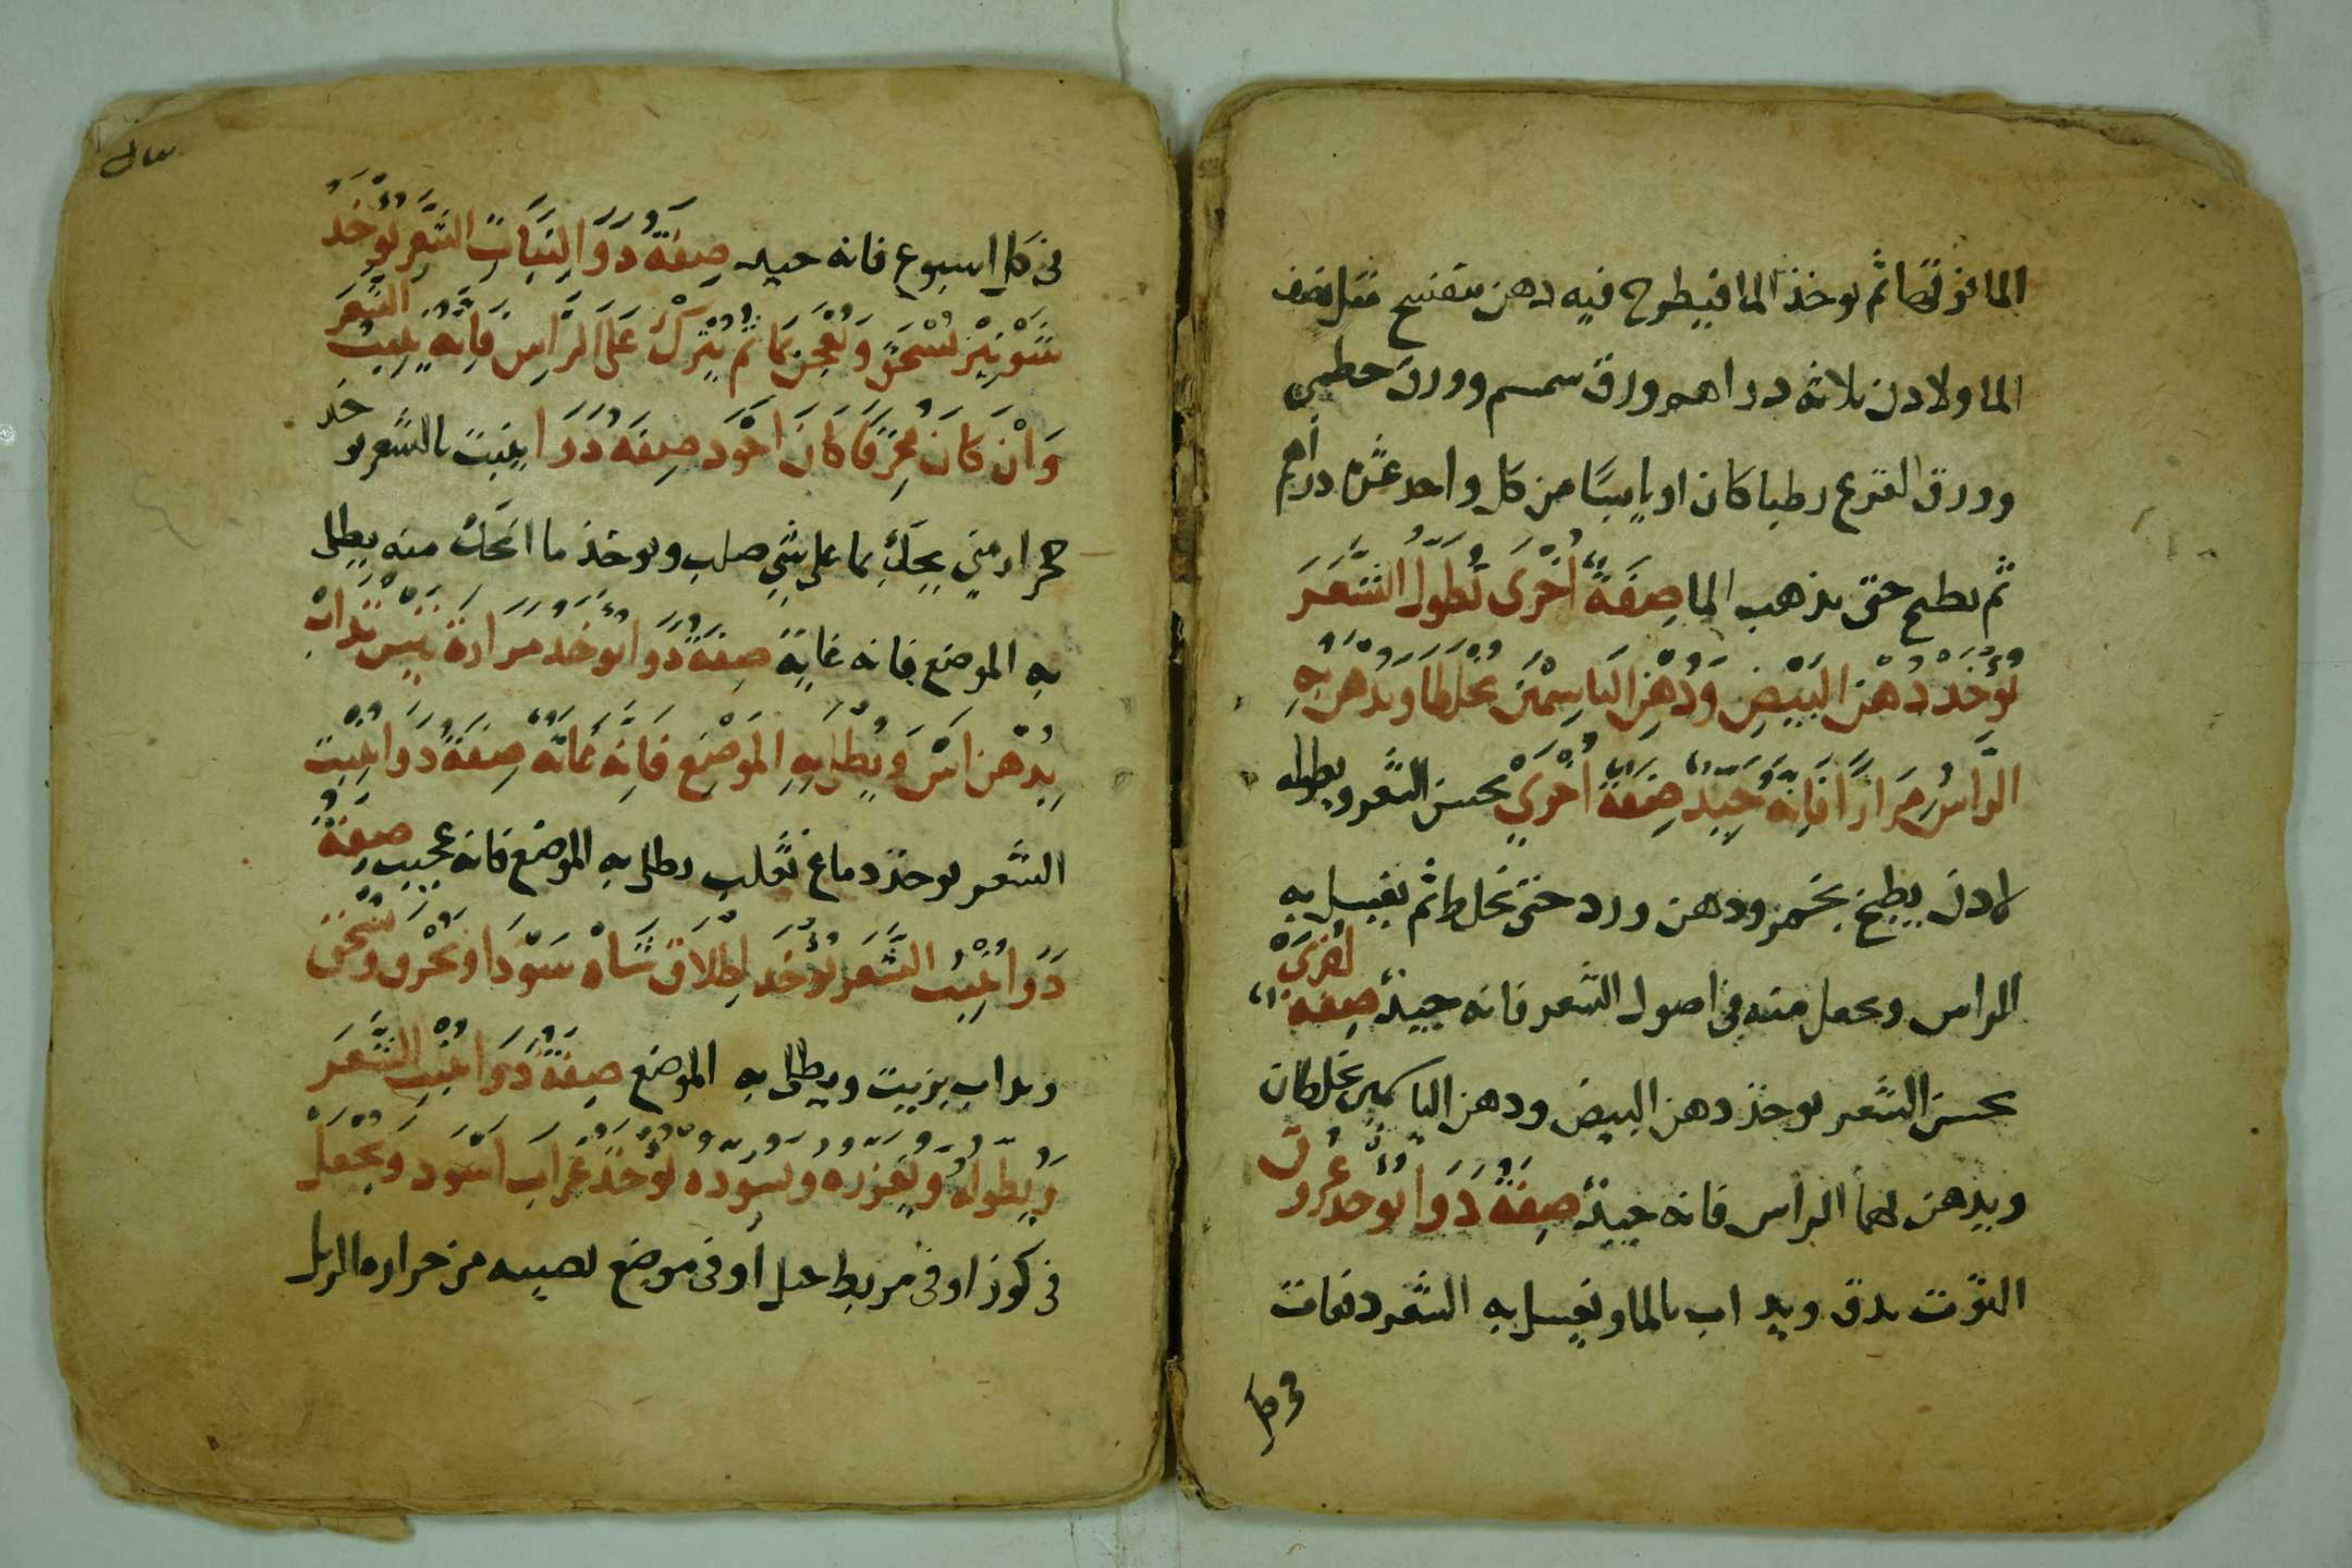 الما نوفصا ثم يوخذ الما فيطرح فيه دهن بنفسج مثل نصف
الما ولادن ثلاثه دراهم ورق سمسم وورق خطمي
وورق القرع رطبا كان او يابسا من كل واحد عشره دراهم
ثم يطبخ حتى يذهب الما صِفَةٌ أُخْرَى تُطَوِلُ الشَّعَرَ
يُؤْخَذ دُهْن البَيْضِ وَدُهنِ اليَاسِمْيْن يخلطا ويدْهن بِهِ
الرَّاسُ مِرَارًا فَإِنَّهُ جَيِدٌ صِفَةٌ أُخْرَي يحسن الشعر ويطوله
لادن يطبخ بخمر ودهن ورد حتى تخلط ثم يغسل به
الراس ويجعل منه في اصول الشعر فانه جيدٌ صفة أخرى
يحسن الشعر يوخذ دهن البيض ودهن الياسمين يخلطان
ويدهن بهما الراس فانه جيدٌ صِفَةُ دَوَا يُوخذ عُرُوق
التوت يدق ويداب بالما ويغسل به الشعر دفعات
في كل اسبوع فانه جيد صِفَةُ دَوَا لِنَبَاتِ الشَّعَرِ يُؤْخَذُ
شَوْنِيْز يُسْحَق وَيُعْجِن بمَا ثُم يُتْرَكْ عَلَى الرَّاسِ فَاِنَّهُ يُنْبِتُ الشعر
وَاِنْ كَانَ مُحْرَقًا كَانَ اَجْوَد صِفَةُ دَوَا ينبت الشعر يوخذ
حجر ارمني يحك بما على شي صلب ويوخذ ما انحكّ منه يطلى
به الموضع فانه غاية صِفَةُ دَوَا يُوخَذ مَرَارَةُ تَيْس تدابْ
بِدُهْن اَسْ وَيُطلى بِهِ المَوْضِع فَاِنَّه غَايَةٌ صِفَةُ دَوَا يُنْبِت
الشعر يوخذ دماغ ثعلب يطلى به الموضع فانه عجيب صفةُ
دَوَا يُنْبِتُ الشَّعَر يُؤْخَذ اِظلَافْ شَاهْ سَوْدَا وتُحْرَق وتُسْحَق
وتداب بزيت ويطلى به الموضع صِفَةُ دَوَا يُنْبِت الشَّعَرَ
وَيُطَوِلُهُ وَيُغَزِرُه وَيُسَوِدُه يُؤْخَذ غُرَاب اسْوَد وَيُجْعَلْ
في كوز او في مربط خيل أو في موضع تصيبه من حراره الزبل